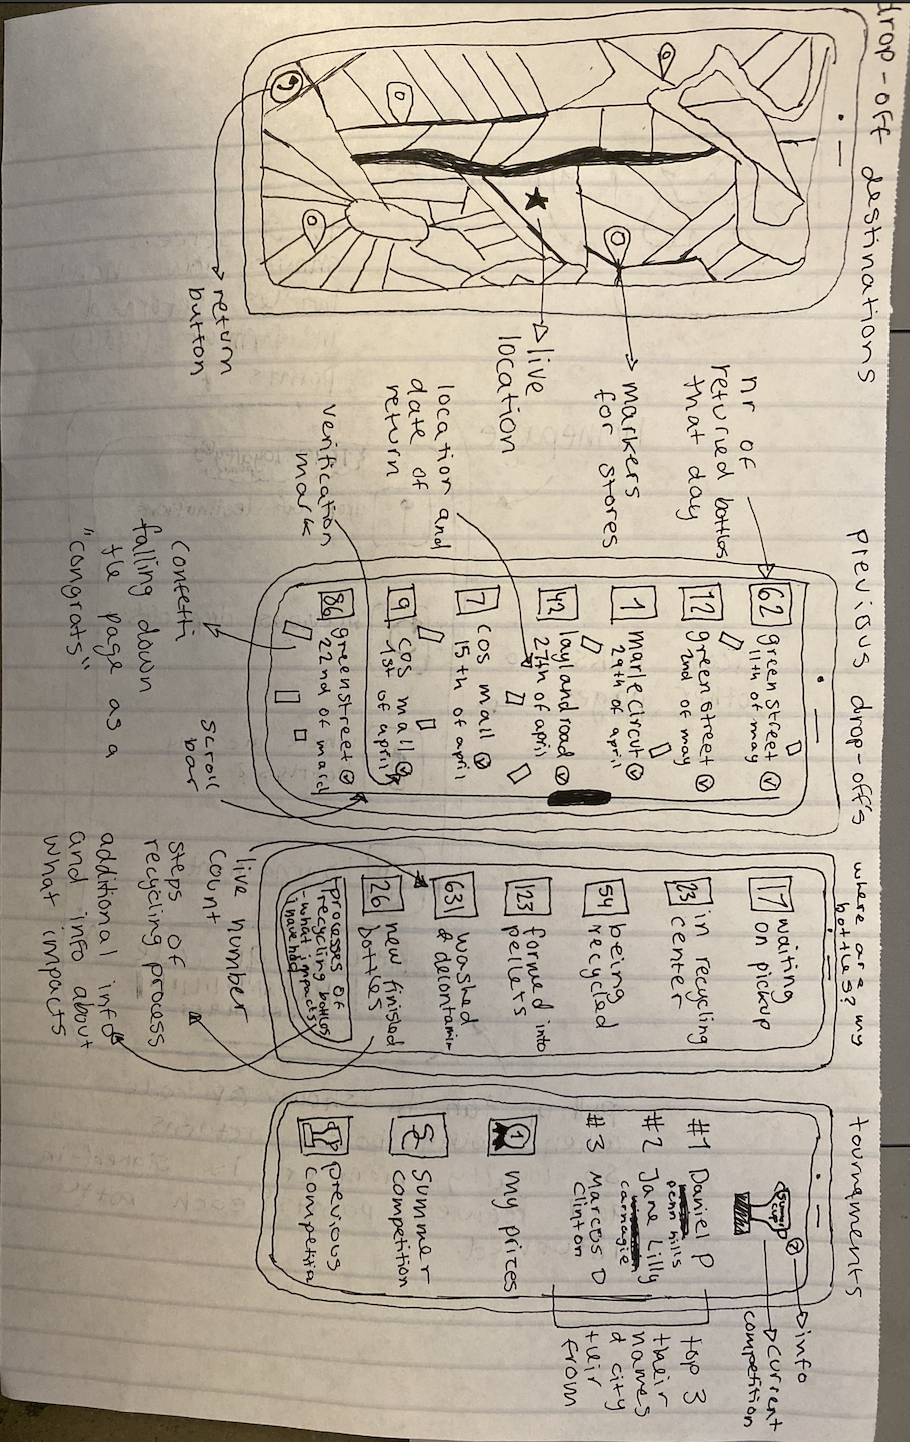 drop-off destinations
return
button
live
location
markers
for stores
previous drop-off's
nr of
returied bottles
that day
location and
date of
return
verification
mark
confetti
falling down
the page as a
"congrats"
scroll
bar
62 green street v
11th of may
12 green street v
2nd of may
1 marle circut v
29th of april
42 layland road v
27th of april
7 cos mall v
15th of april
9 cos mall v
1st of april
86 greenstreet v
22nd of march
where are my
bottles?
17 waiting
on pickup
23 in recycling
center
54 being
recycled
123 formed into
pellets
631 washed
& decontamin
26 new finished
bottles
processes of
recycling bottles
-what impacts
i have had
live number
count
steps of
recycling process
additional info
and info about
what impacts
tournaments
summer
cup
?
#1 Daniel P
penn hills
#2 Jane Lilly
carnagie
#3 Marcos D
Clinton
1 my prices
summer
competition
previous
competitia
info
current
competition
top 3
their
names
& city
their
from